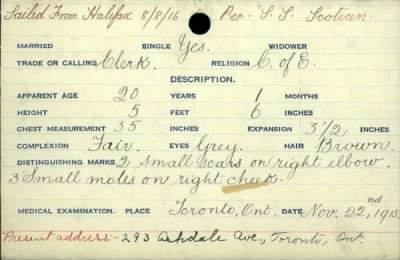 Sailed From Halifax 8/8/16 Per S.S. Scotian.
MARRIED SINGLE Yes. WIDOWER
TRADE OR CALLING Clerk. RELIGION C. of E.
DESCRIPTION.
APPARENT AGE 20 YEARS 1 MONTHS
HEIGHT 5 FEET 6 INCHES
CHEST MEASUREMENT 35 INCHES EXPANSION 3 1/2 INCHES
COMPLEXION Fair. EYES Grey. HAIR Brown.
DISTINGUISHING MARKS 2 Small scars on right elbow.
3 Small moles on right cheek.
MEDICAL EXAMINATION. PLACE Toronto, Ont. DATE Nov. 22nd, 1915.
Present address - 293 Ashdale Ave., Toronto, Ont.